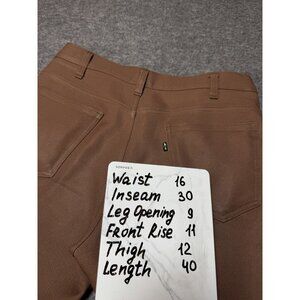 Waist 16
Inseam 30
Leg Opening 9
Front Rise 11
Thigh 12
Length 40